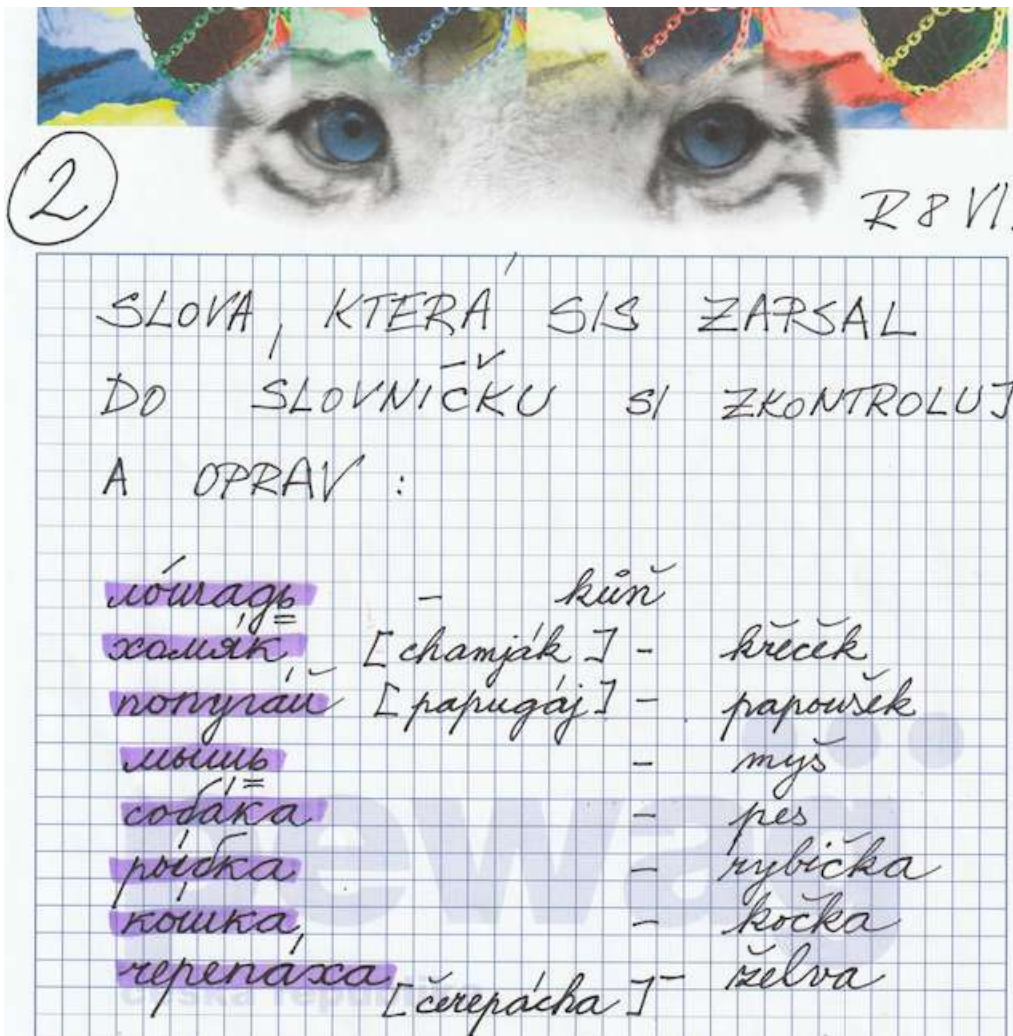 2
R 8 VI.
SLOVA, KTERÁ SIS ZAPSAL
DO SLOVNÍČKU SI ZKONTROLUJ
A OPRAV :
ло́шадь - kůň
хомя́к [chamják] - křeček
попуга́й [papugáj] - papoušek
мышь - myš
соба́ка - pes
ры́бка - rybička
ко́шка - kočka
черепа́ха [čerepácha] - želva
pewag
česká republika